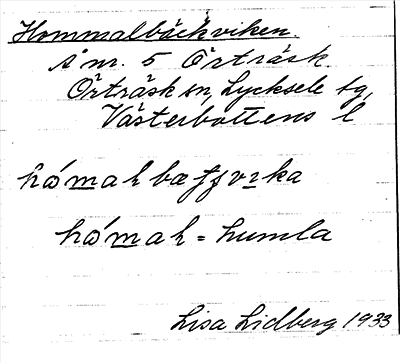 Hommalbäckviken.
i nr. 5 Örträsk.
Örträsk sn, Lycksele tg,
Västerbottens l
hámahbæ
hámah = humla
Lisa Lidberg 1933